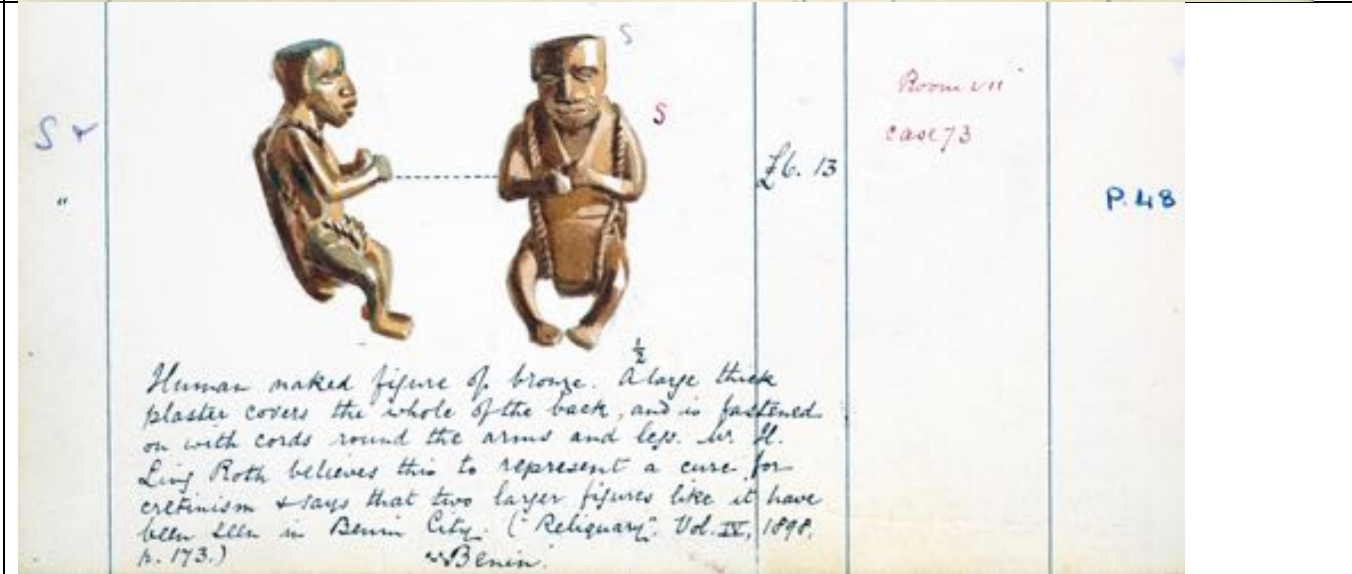 S
S
S
"
£6. 13
Room VII
Case 73
P. 48
1/2
Human naked figure of bronze. A large thick
plaster covers the whole of the back, and is fastened
on with cords round the arms and legs. Mr H.
Ling Roth believes this to represent a cure for
cretinism & says that two larger figures like it have
been seen in Benin City. ("Reliquary". Vol. IV, 1898,
p. 173.) Benin.